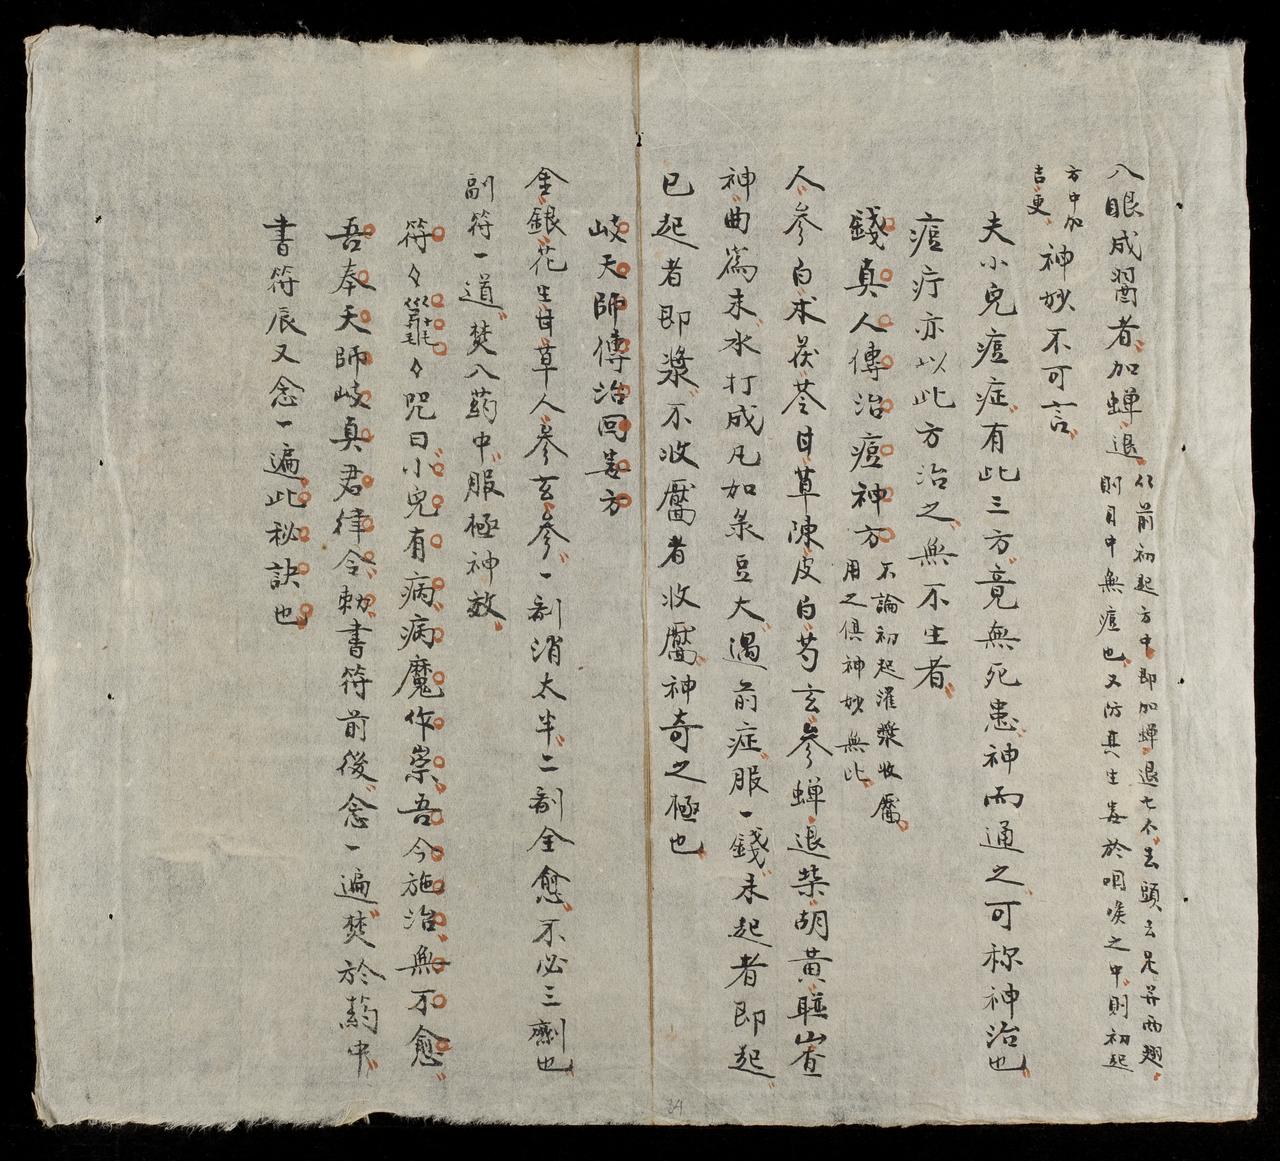 八眼成翳者加蟬退從前初起方中即加蟬退七个去頭去足并兩翅
則目中無痘也又防其生毒於咽喉之中則初起
方中加
吉更神妙不可言
夫小兒痘症有此三方竟無死患神而通之可称神治也
痘疔亦以此方治之無不生者
錢真人傳治痘神方不論初起灌漿收靨
用之俱神妙無比
人參白朮茯苓甘草陳皮白芍玄參蟬退柴胡黃芪山查
神曲為末水打成丸如菉豆大遇前症服一錢未起者即起
已起者即漿不收靨者收靨神奇之極也
岐天師傳治回毒方
金銀花生甘草人參玄參一劑消太半二劑全愈不必三劑也
副符一道焚入药中服極神效
符々々咒曰小兒有病病魔作祟吾今施治無不愈
吾奉天師岐真君律令勅書符前後念一遍焚於葯中
書符辰又念一遍此秘訣也
34